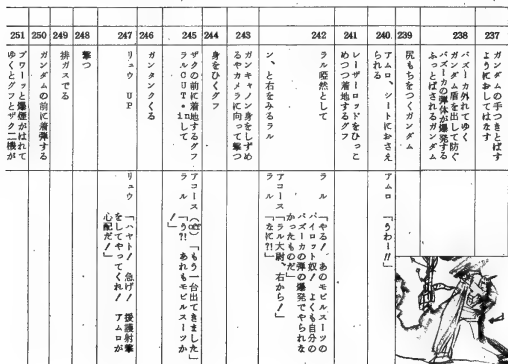 237
ガンダムの手つきとばす
ようにおしてはなす
238
バズーカ外れてゆく
ガンダム盾を出して防ぐ
バズーカの弾体が爆発する
ふっとばされるガンダム
239
尻もちをつくガンダム
240
アムロ、シートにおさえ
られる
アムロ
「うわー!!」
241
レーザーロッドをひっこ
めつつ着地するグフ
242
ラル唖然として
ラル
「やる! あのモビルスーツの
パイロット奴! よくも自分の
バズーカの弾の爆発でやられな
かったものだ」
アコース
「ラル大尉、右から!」
ラル
「なに?!」
ン、と右をみるラル
243
ガンキャノン身をしずめ
るやカメラに向って撃つ
244
身をひくグフ
245
ザクの前に着地するグフ
ラルCUT・inして
アコース(off)
「もう一台出てきました」
ラル
「う?! あれもモビルスーツか
!」
246
ガンタンクくる
247
リュウ UP
リュウ
「ハヤト! 急げ! 援護射撃
をしてやってくれ! アムロが
心配だ!」
248
撃つ
249
排ガスでる
250
ガンダムの前に着弾する
251
ブワーッと爆煙がはれて
ゆくとグフとザク二機が